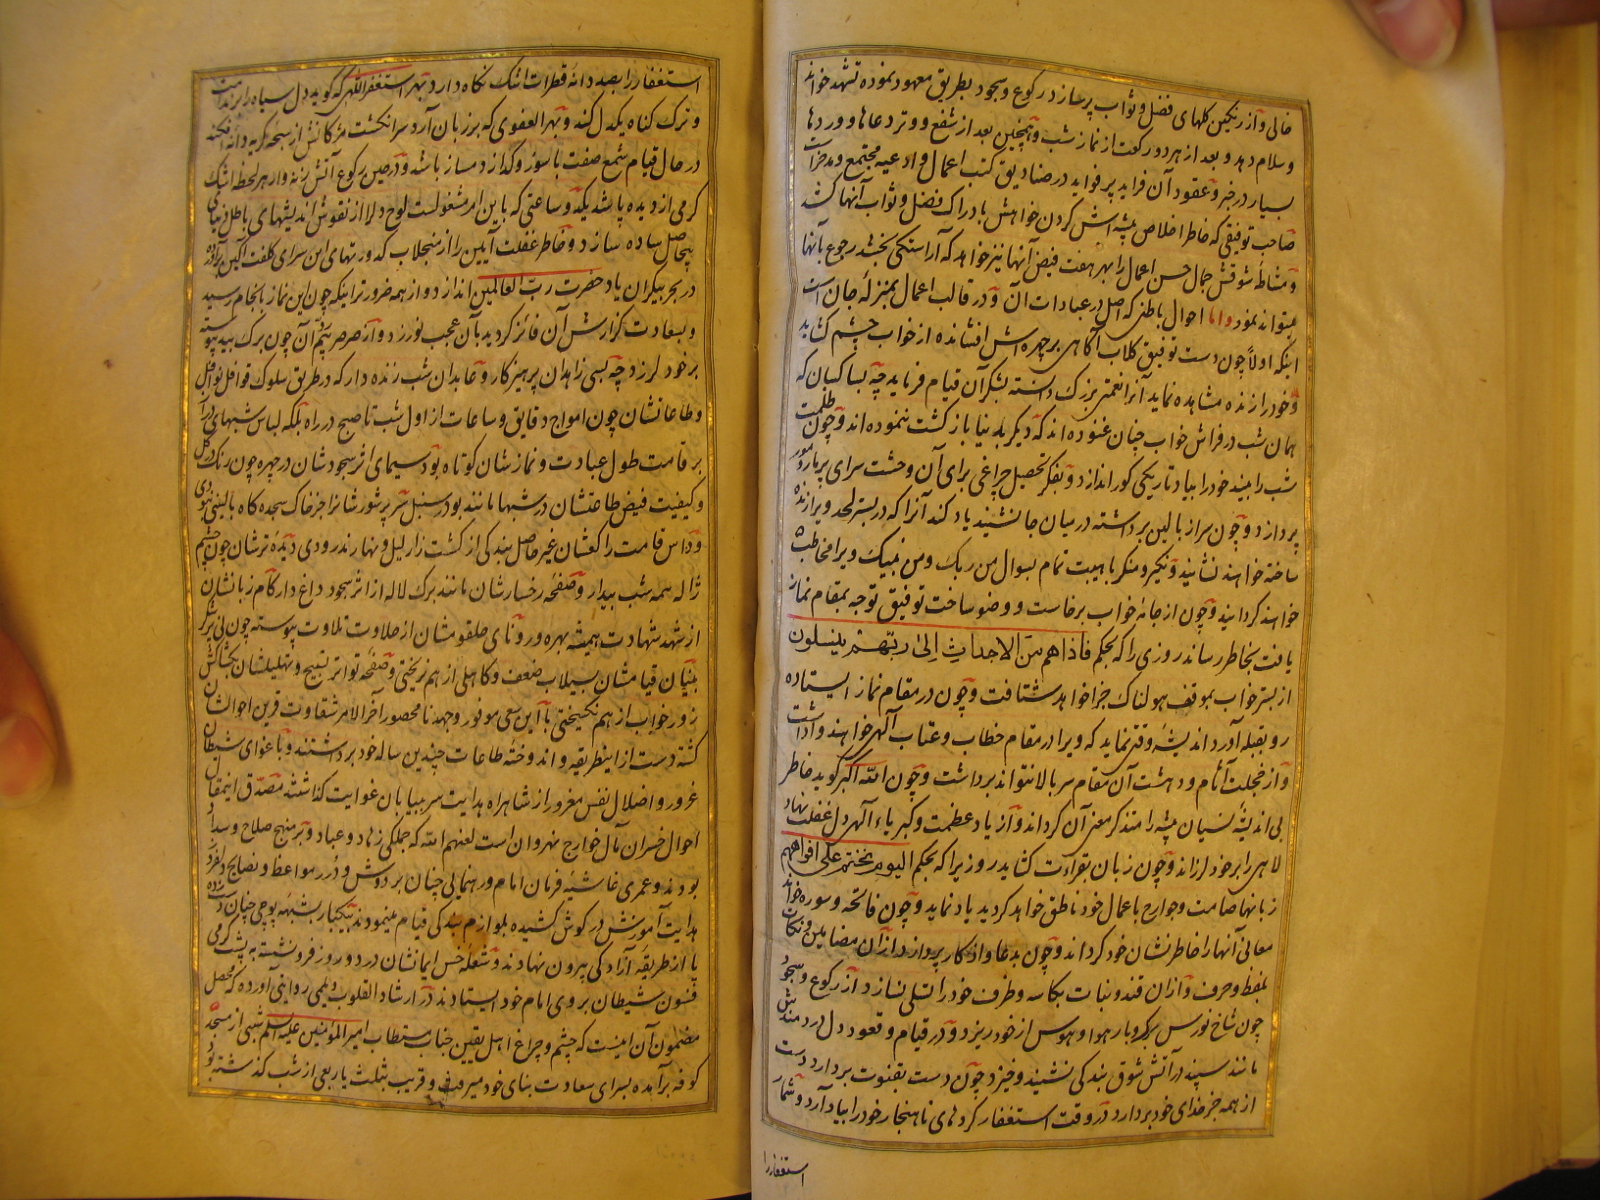 خالی و از رنگین گلهای فضل و ثواب پر سازد در رکوع و سجود بطریق معهود نموده تشهد خواند
و سلام دهد و بعد از هر دو رکعت از نماز شب و همچنین بعد از شفع و وتر دعاها و وردها
بسیار در خبر و عقود آن فراید پر فواید در صنادیق کتب اعمال و ادعیه مجتمع و مدخراست
صاحب توفیقی که خاطر اخلاص پیشه اش کردن خواهش بادراک فضل و ثواب آنها کشد
و مشاطه شوقش جمال حسن اعمال را بهر هفت فیض آنها نیز خواهد که آراستگی بخشد رجوع بآنها
میتواند نمود و اما احوال باطنی که اصل در عبادات آن و در قالب اعمال بمنزله جان است
اینکه اولا چون دست توفیق گلاب آگاهی بر چهره اش افشانده از خواب چشم گشاید
و خود را زنده مشاهده نماید آنرا نعمتی بزرگ دانسته بشکر آن قیام فرماید چه بسا کسان که
همان شب در فراش خواب چنان غنوده اند که دیگر بدنیا بازگشت ننموده اند و چون ظلمت
شب را بیند خود را بیاد تاریکی گور اندازد و بفکر تحصیل چراغی برای آن وحشت سرای پر مار و مور
پردازد و چون سر از بالین برداشته در میان جا نشیند یاد کند آنرا که در بستر لحد ویرا زنده
ساخته خواهند نشانید و نکیر و منکر با هیبت تمام بسوال من ربک و من نبیک ویرا مخاطب
خواهند گردانید و چون از جامه خواب برخاست و وضو ساخت توفیق توجه بمقام نماز
یافت بخاطر رساند روزی را که بحکم فاذا هم من الاجداث الی ربهم ینسلون
از بستر خواب بموقف هولناک جزا خواهد شتافت و چون در مقام نماز ایستاده
رو بقبله آورد اندیشه وقتی نماید که ویرا در مقام خطاب و عتاب الهی خواهند واداشت
و از خجلت آثام و دهشت آن مقام سر بالا نتواند برداشت و چون الله اکبر گوید خاطر
بی اندیشه نسیان پیشه را متذکر معنی آن گرداند و از یاد عظمت و کبریاء الهی دل غفلت نهاد
لاهی را بر خود لرزاند و چون زبان بقراءت گشاید روزی را که بحکم الیوم نختم علی افواههم
زبانها صامت و جوارح باعمال خود ناطق خواهد گردید یاد نماید و چون فاتحه و سوره خواند
معانی آنها را خاطر نشان خود گرداند و چون بدعا و اذکار پردازد از آن مضامین و نکات
بلفظ و حرف و از آن قند و نبات بکاسه و ظرف خود را تسلی نسازد از رکوع و سجود
چون شاخ نورس بر کبر و بار هوا و هوس از خود ریزد و در قیام و قعود دل دردمندش
مانند سپند در آتش شوق بندگی نشیند و خیزد چون دست بقنوت بردارد دست
از همه جز خدای خود بردارد در وقت استغفار کردهای ناهنجار خود را بیاد آرد و شمار
استغفار را
استغفار را بصد دانه قطرات اشک نگاه دارد بهر استغفرالله که گوید دل سیاه را بر ندامت
و ترک گناه یکدل کند و بهر العفوی که بر زبان آرد سرانگشت مژگانش از سبحه گریه دانه افکند
در حال قیام شمع صفت با سوز و گداز دمساز باشد و در حین رکوع آتش زنه وار هر لحظه اشک
گرمی از دیده پاشد یکدو ساعتی که باین امر مشغولست لوح دلا از نقوش اندیشهای باطل دنیای
بیحاصل ساده سازد و خاطر غفلت آیین را از منجلاب کدورتهای این سرای کلفت آگین برآورده
در بحر بیکران یاد حضرت رب العالمین اندازد و از همه ضرورتر اینکه چون این نماز بانجام رسید
و بسعادت گزارش آن فائز گردید بآن عجب نورزد و از صرصر بیم آن چون برگ بید پیوسته
بر خود لرزد چه بسی زاهدان پرهیزکار و عابدان شب زنده دار که در طریق سلوک قوافل نوافل
و طاعاتشان چون امواج دقایق و ساعات از اول شب تا صبح در راه بلکه لباس شبهای دراز
بر قامت طول عبادت و نمازشان کوتاه بود سیمای اثر سجودشان در چهره چون رنگ در گل
و کیفیت فیض طاعتشان در شبها مانند بو در سنبل سر پر شورشانرا جز خاک سجده گاه بالینی نبودی
و داس قامت راکعشان غیر حاصل بندگی از کشت زار لیل و نهار ندرودی دیده ترشان چون چشم
ژاله همه شب بیدار و صفحه رخسارشان مانند برگ لاله از اثر سجود داغ دار کام زبانشان
از شهد شهادت همیشه بهره ور و نای حلقومشان از حلاوت تلاوت پیوسته چون نی پر شکر
بنیان قیامشان بسیلاب ضعف و کاهلی از هم نریختی و صفحه تواتر تسبیح و تهلیلشان بکشاکش
زور خواب از هم نگسیختی با این سعی موفور و جهد نامحصور آخر الامر شقاوت قرین احوالشان
گشته دست از اینطریقه و اندوخته طاعات چندین ساله خود برداشتند و باغوای شیطان
غرور و اضلال نفس مغرور از شاهراه هدایت سر ببیابان غوایت گذاشتند مصدق اینمقال
احوال خسران مآل خوارج نهروان است لعنهم الله که جملگی زهاد و عباد و بر منهج صلاح و سداد
بودند و عمری غاشیه فرمان امام و رهنمایی چنان بر دوش و درر مواعظ و نصایح
هدایت آموزش در گوش کشیده بلوازم بندگی قیام مینمودند بیکبار بشبهه پوچی چنان
پا از طریقه آزادگی بیرون نهادند و شعله حس ایمانشان در دو روز فرو نشسته به پشت گرمی
فسون شیطان بروی امام خود ایستادند در ارشاد القلوب دیلمی روایتی آورده که محصل
مضمون آن اینست که چشم و چراغ اهل یقین جناب مستطاب امیر المؤمنین علیه السلم شبی از مسجد
کوفه برآمده بسرای سعادت بنای خود میرفت و قریب بثلث یا ربعی از شب گذشته بود